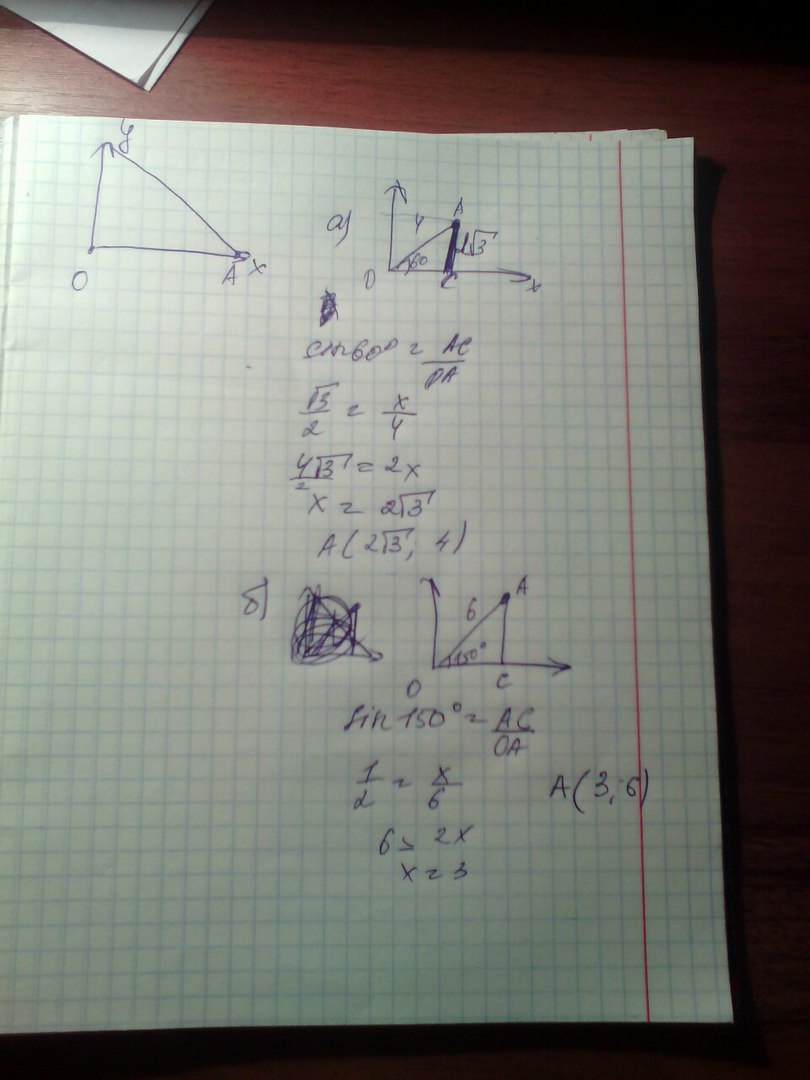 y
O
A x
а)
4
A
2√3
60
O
C
x
sin60° = AC/OA
√3/2 = x/4
4√3 = 2x
x = 2√3
A(2√3; 4)
б)
6
A
150°
O
C
sin 150° = AC/OA
1/2 = x/6
A(3; 6)
6 = 2x
x = 3